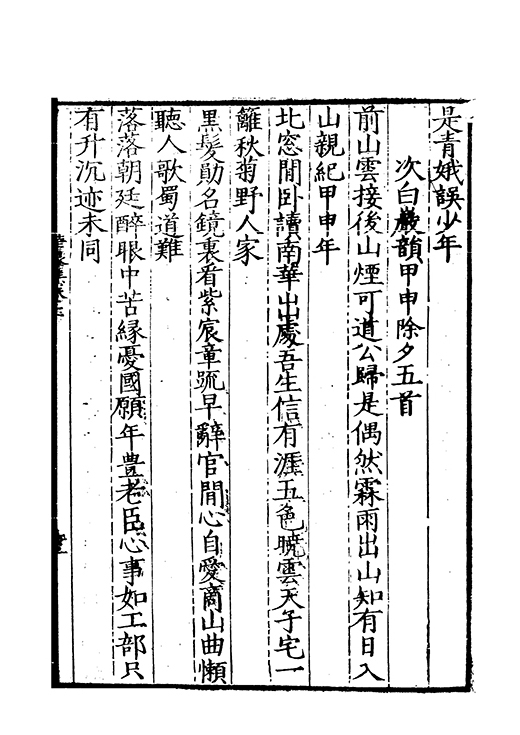 是青娥誤少年
次白巖韻甲申除夕五首
前山雲接後山煙可道公歸是偶然霖雨出山知有日入
山親紀甲申年
北窓閒卧讀南華出處吾生信有涯五色曉雲天子宅一
籬秋菊野人家
黑髮勛名鏡裏看紫宸章䟽早辭官閒心自愛商山曲懶
聽人歌蜀道難
落落朝廷醉眼中苦縁憂國願年豊老臣心事如工部只
有升沉迹未同